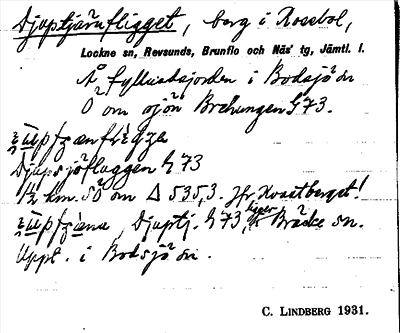 Djuptjärnfligget, berg i Rosebol,
Lockne sn, Revsunds, Brunflo och Näs' tg, Jämtl. l.
Å fylliadsjorden i Bodsjö sn
O om sjön G 73.
Djupsjöfluggen G 73
1/2 km. SO om Δ 535,3. Jfr
Djuptj. G 73, ligger i Bräcke sn.
Uppt. i Bodsjö sn.
C. LINDBERG 1931.